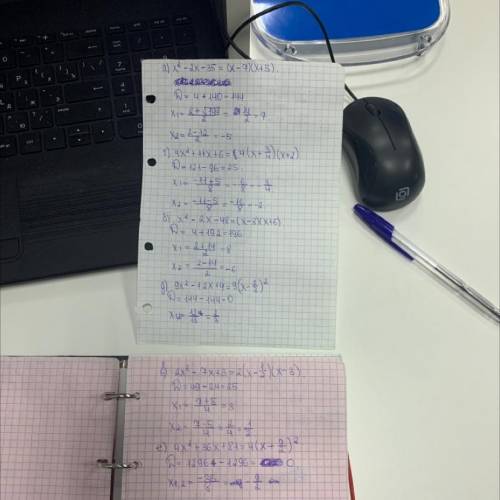 а) x² - 2x - 35 = (x - 7)(x + 5).
D = 4 + 140 = 144
x₂ = (2 - 12)/2 = -5
г) 4x² + 11x + 6 = 4(x + 3/4)(x + 2)
D = 121 - 96 = 25
x₁ = (-11 + 5)/8 = -6/8 = -3/4
x₂ = (-11 - 5)/8 = -16/8 = -2
б) x² - 2x - 48 = (x - 8)(x + 6)
D = 4 + 192 = 196
x₁ = (2 + 14)/2 = 8
x₂ = (2 - 14)/2 = -6
д) 9x² - 12x + 4 = 9(x - 2/3)²
D = 144 - 144 = 0
в) 2x² - 7x + 3 = 2(x - 1/2)(x - 3)
D = 49 - 24 = 25
x₁ = (7 + 5)/4 = 3
x₂ = (7 - 5)/4 = 2/4 = 1/2
е) 4x² + 36x + 81 = 4(x + 9/2)²
D = 1296 - 1296 = 0
x₁,₂ = -36/8 = -9/2